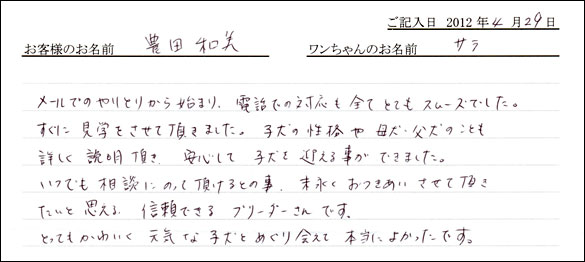 ご記入日 2012年4月29日
お客様のお名前 豊田 和美 ワンちゃんのお名前 サラ
メールでのやりとりから始まり、電話での対応も全てとてもスムーズでした。
すぐに見学をさせて頂きました。子犬の性格や母犬・父犬のことも
詳しく説明頂き、安心して子犬を迎える事ができました。
いつでも相談にのって頂けるとの事、末永くおつきあいさせて頂き
たいと思える、信頼できるブリーダーさんです。
とってもかわいく元気な子犬とめぐり会えて本当によかったです。